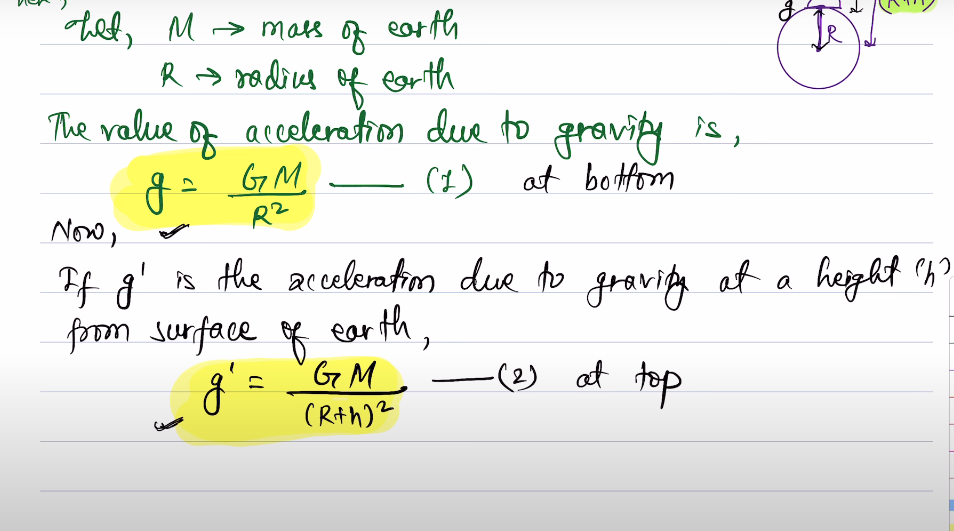 Let, M → mass of earth
R → radius of earth
The value of acceleration due to gravity is,
g = GM / R² —— (1) at bottom
Now,
If g' is the acceleration due to gravity at a height 'h'
from surface of earth,
g' = GM / (R+h)² —— (2) at top
g
R
(R+h)